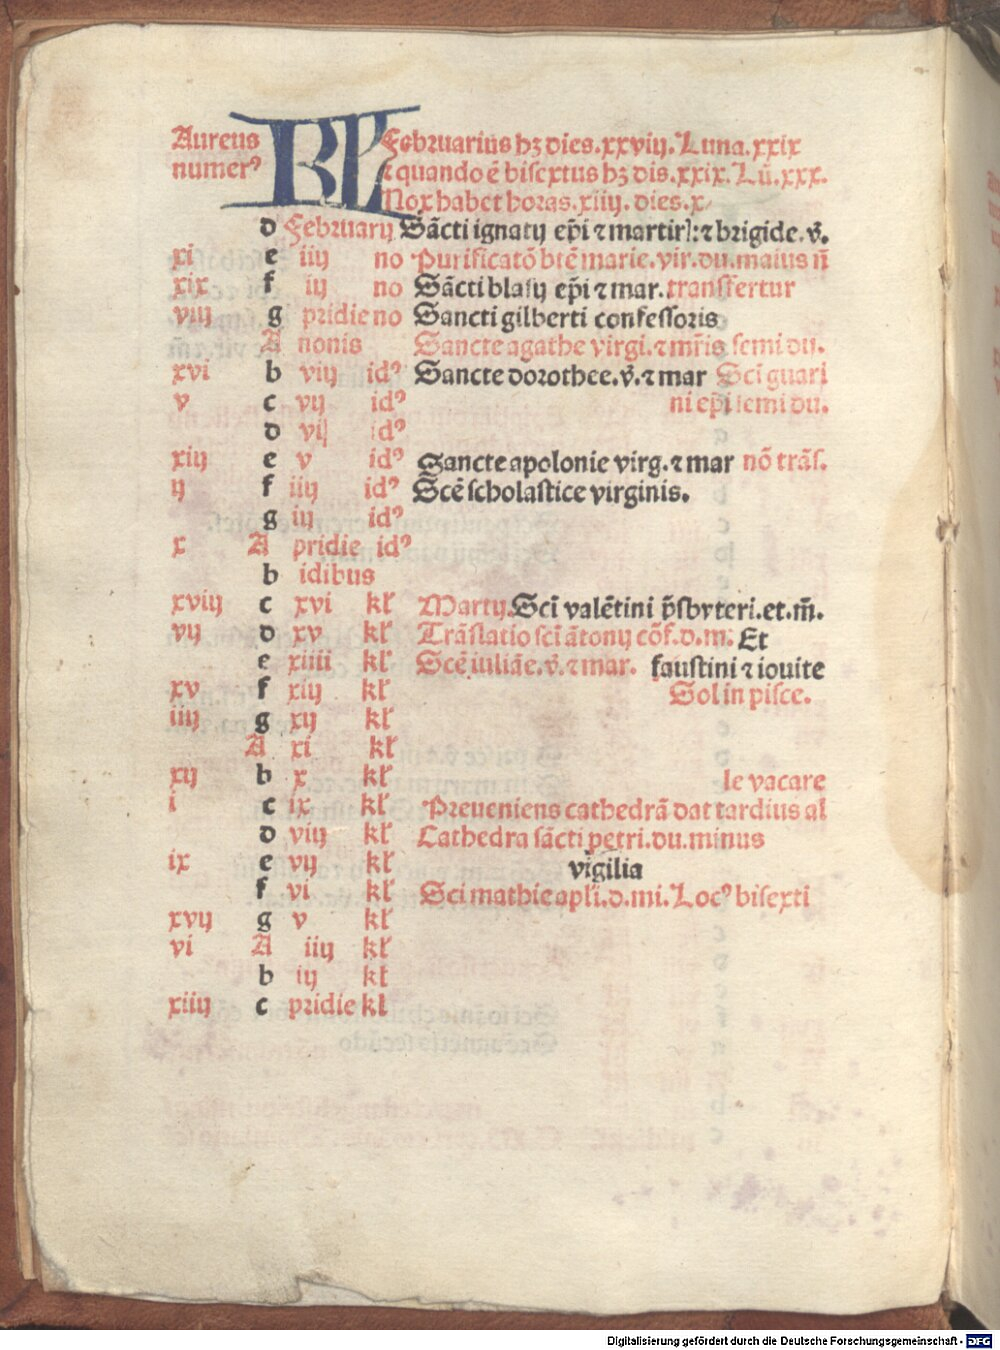 Aureus numerꝰ KL Februarius hꝫ dies.xxviij.Luna.xxix
⁊ quando ē bisextus hꝫ dis.xxix.Lū.xxx.
Nox habet horas.xiiij.dies.x
d Februarij Sācti ignatij ep̄i ⁊ martir]:⁊ brigide.v̄.
xi e iiij no Purificatō btē marie.vir.du.maius n̄
xix f iij no Sācti blasij ep̄i ⁊ mar.transfertur
viij g pridie no Sancti gilberti confessoris
A nonis Sancte agathe virgi.⁊ mr̄is semi du.
xvi b viij idꝰ Sancte dorothee.v̄.⁊ mar Sci guari
v c vij idꝰ ni epi semi du.
d vi idꝰ
xiij e v idꝰ Sancte apolonie virg.⁊ mar nō trās.
ij f iiij idꝰ Scē scholastice virginis.
g iij idꝰ
x A pridie idꝰ
b idibus
xviij c xvi kł Martij.Sci valētini p̄sbyteri.et.m̄.
vij d xv kł Trāslatio sci ātonij cōf.d.m. Et
e xiiii kł Scē iuliāe.v̄.⁊ mar. faustini ⁊ iouite
xv f xiij kł Sol in pisce.
iiij g xij kł
A xi kł
xij b x kł le vacare
i c ix kł Preueniens cathedrā dat tardius al
d viij kł Cathedra sācti petri.du.minus
ix e vij kł vigilia
f vi kł Sci mathie apłi.d.mi.Locꝰ bisexti
xvij g v kł
vi A iiij kł
b iij kł
xiiij c pridie kł
Digitalisierung gefördert durch die Deutsche Forschungsgemeinschaft - DFG